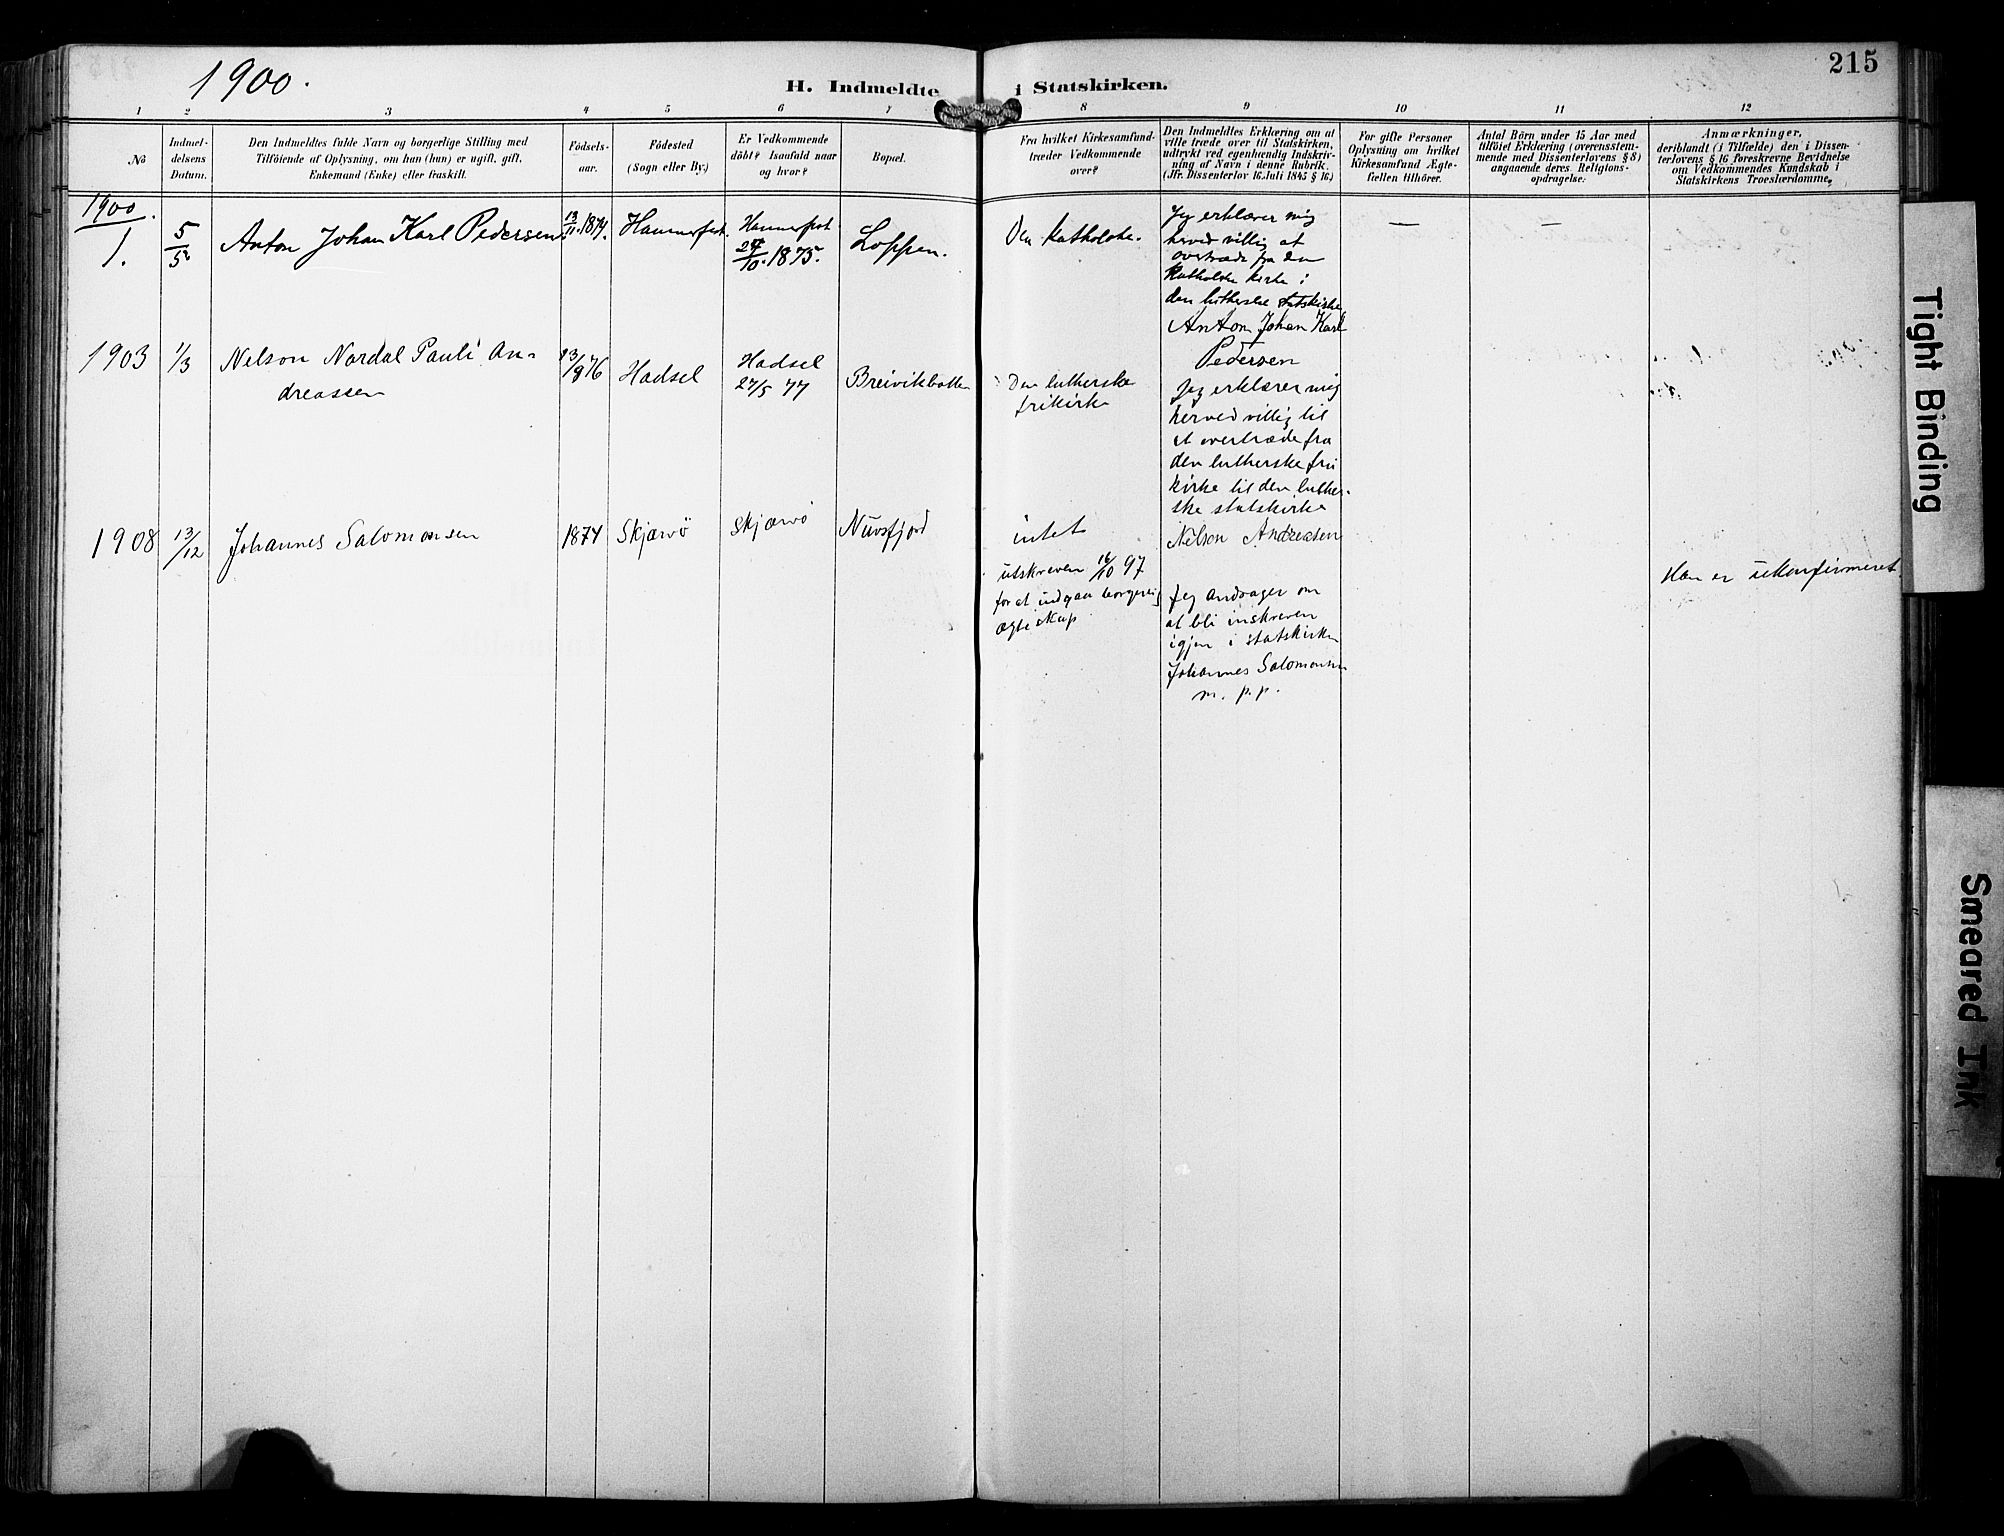 1900.
H. Indmeldte i Statskirken.
215
1
2
3
4
5
6
7
8
9
10
11
12
No
Indmel-
delsens
Datum.
Den Indmeldtes fulde Navn og borgerlige Stilling med
Tilföiende af Oplysning, om han (hun) er ugift, gift,
Enkemand (Enke) eller fraskilt.
Födsels-
aar.
Födested
(Sogn eller By.)
Er Vedkommende
döbt? Isaafald naar
og hvor?
Bopæl.
Fra hvilket Kirkesamfund-
træder Vedkommende
over?
Den Indmeldtes Erklæring om at
ville træde over til Statskirken,
udtrykt ved egenhændig Indskriv-
ning af Navn i denne Rubrik.
(Jfr. Dissenterlov 16. Juli 1845 § 16)
For gifte Personer
Oplysning om hvilket
Kirkesamfund Ægte-
fællen tilhörer.
Antal Börn under 15 Aar med
tilföiet Erklæring (overensstem-
mende med Dissenterlovens § 8)
angaaende deres Religions-
opdragelse.
Anmærkninger,
deriblandt (i Tilfælde) den i Dissen-
terlovens § 16 foreskrevne Bevidnelse
om Vedkommendes Kundskab i
Statskirkens Troeslærdomme.
1900.
1.
5/5
Anton Johan Karl Pedersen
13/11. 1874.
Hammerfest.
Hammerfest
24/10. 1875.
Loppen.
Den katholske.
Jeg erklærer mig
herved villig at
overtræde fra den
Katholske kirke i
den lutherske statskirke
Anton Johan Karl
Pedersen
—
—
1903
1/3
Nelson Nordal Pauli An-
dreassen
13/9 76
Hadsel
Hadsel
27/5 77
Breivikbotten
Den lutherske
frikirke
Jeg erklærer mig
herved villig til
at overtræde fra
den lutherske fri
kirke til den luther-
ske statskirke
Nelson Andreasen
1908
13/12
Johannes Salomonsen
1874
Skjærvö
Skjærvö
Nuvsfjord
intet
utskreven 16/10 97
for at indgaa borgerlig
ægteskap
Jeg andrager om
at bli inskreven
igjen i statskirken
Johannes Salomonsen
m. p. p.
Han er ukonfirmeret.
Tight Binding
Smeared Ink